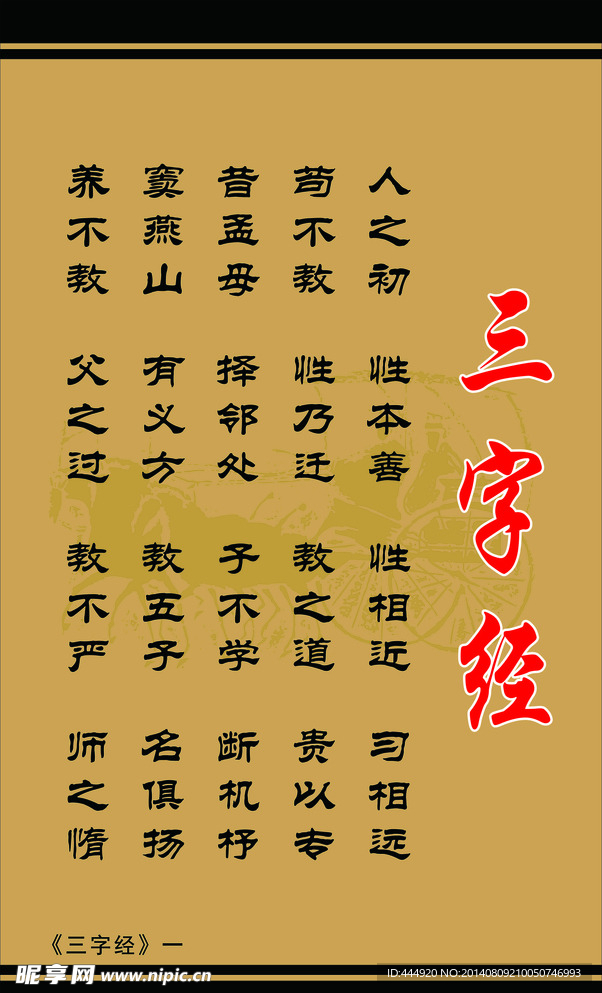 三字经
人之初 性本善 性相近 习相远
苟不教 性乃迁 教之道 贵以专
昔孟母 择邻处 子不学 断机杼
窦燕山 有义方 教五子 名俱扬
养不教 父之过 教不严 师之惰
《三字经》一
昵享网 www.nipic.cn
ID:444920 NO:20140809210050746993